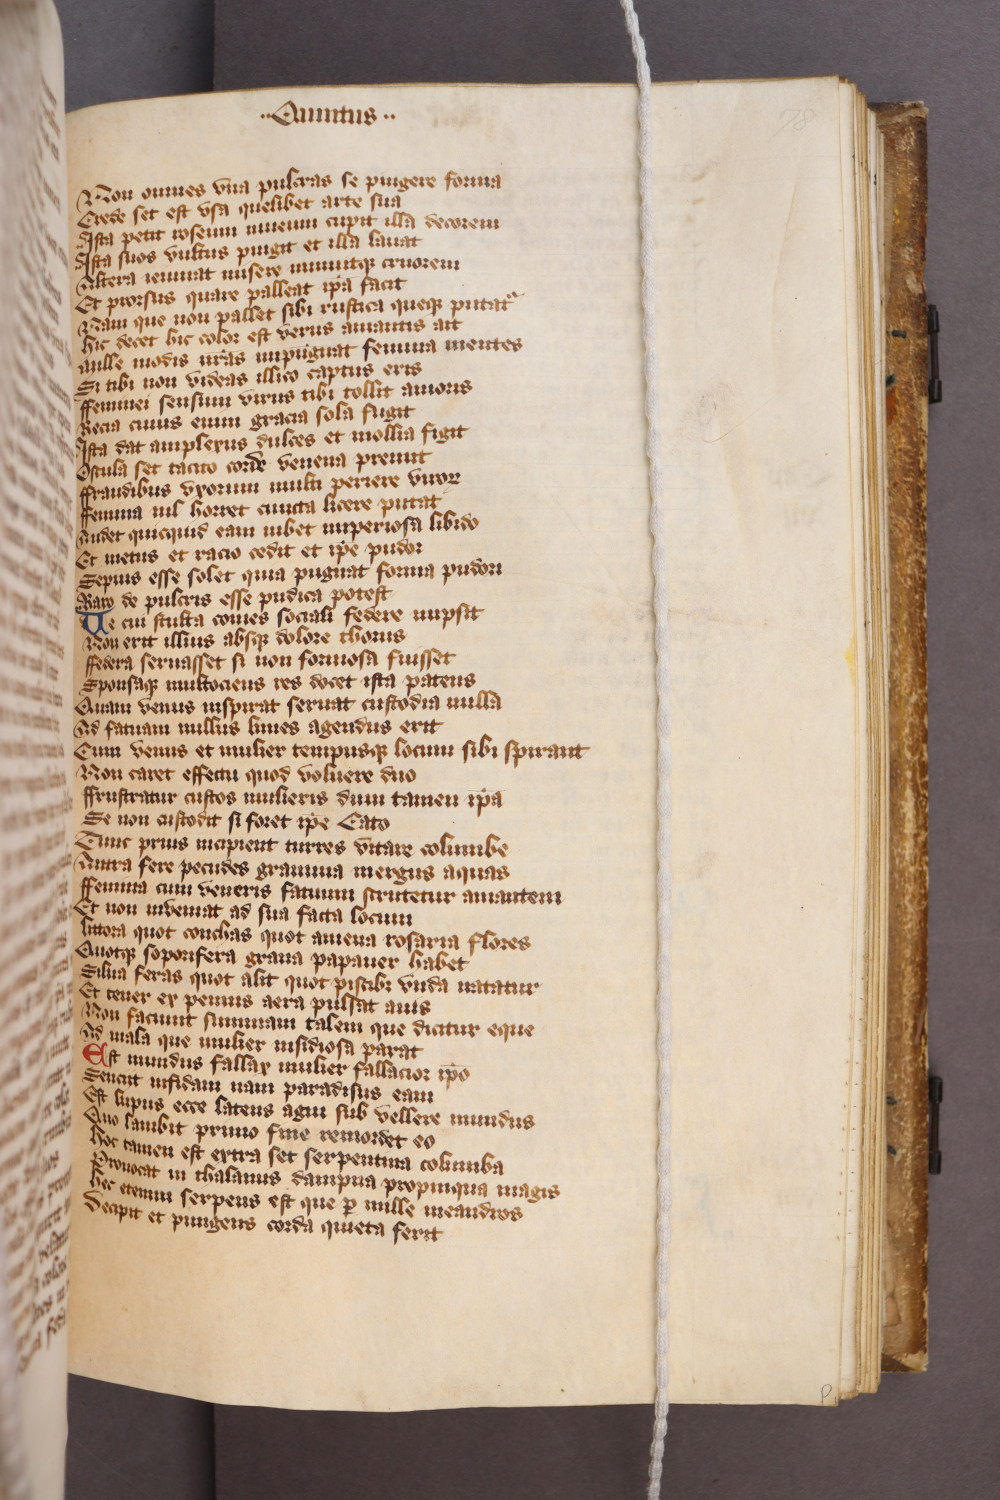 ..Quintus..
78
Non omnes vna pulcras se pingere forma
Crede set est vsa quelibet arte sua
Ista petit roseum niueum cupit illa decorem
Ista suos vultus pingit et illa lauat
Altera ieiunat misere minuitqȝ cruorem
Et prorsus quare palleat ip̄a facit
Nam que non pallet sibi rustica queqȝ putatᵘʳ
Hic decet hic color est verus amantis ait
Mille modis nr̄as impugnat femina mentes
Si tibi non videas illico captus eris
ffeminei sensum virus tibi tollit amoris
Recia cuius enim gracia sola fugit
Ista dat amplexus dulces et mollia figit
Oscula set tacito corde venena premit
ffraudibus vxorum multi periere viroꝝ
ffemina nil horret cuncta licere putat
Audet quicquid eam iubet imperiosa libido
Et metus et racio cedit et ip̄e pudor
Sepius esse solet quia pugnat forma pudori
Raro de pulcris esse pudica potest
Ue cui stulta comes sociali federe nupsit
Non erit illius absqȝ dolore thorus
ffedera seruasset si non formosa fuisset
Sponsaqȝ multociens res docet ista patens
Quam venus inspirat seruat custodia nulla
Ad fatuam nullus limes agendus erit
Cum venus et mulier tempusqȝ locum sibi spirant
Non caret effectu quod voluere duo
ffrustratur custos mulieris dum tamen ip̄a
Se non custodit si foret ip̄e Cato
Tunc prius incipient turres vitare columbe
Antra fere pecudes gramina mergus aquas
ffemina cum veneris fatuum scrutetur amantem
Et non inveniat ad sua facta locum
littora quot conchas quot amena rosaria flores
Quotqȝ soporifera grana papauer habet
Silua feras quot alit quot piscibȝ vnda natatur
Et tener ex pennis aera pulsat auis
Non faciunt summam talem que dicitur eque
Ad mala que mulier insidiosa parat
Est mundus fallax mulier fallacior ip̄o
Sencit infidam nam paradisus eam
Est lupus ecce latens agni sub vellere mundus
Quo lambit primo fine remordet eo
Hoc tamen est extra set serpentina columba
Prouocat in thalamis dampna propinqua magis
Hec etenim serpens est que ꝑ mille meandros
Decipit et pungens corda quieta ferit